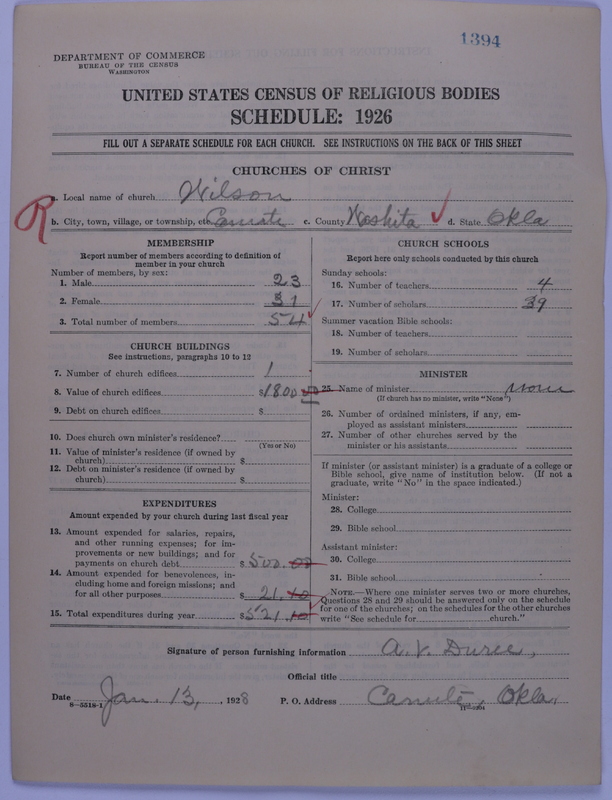 1394
DEPARTMENT OF COMMERCE
BUREAU OF THE CENSUS
WASHINGTON
UNITED STATES CENSUS OF RELIGIOUS BODIES
SCHEDULE: 1926
FILL OUT A SEPARATE SCHEDULE FOR EACH CHURCH. SEE INSTRUCTIONS ON THE BACK OF THIS SHEET
CHURCHES OF CHRIST
R
a. Local name of church Wilson
b. City, town, village, or township, etc. Canute c. County Washita d. State Okla
MEMBERSHIP
Report number of members according to definition of
member in your church
Number of members, by sex:
1. Male 23
2. Female 31
3. Total number of members 54
CHURCH BUILDINGS
See instructions, paragraphs 10 to 12
7. Number of church edifices 1
8. Value of church edifices $1800.00
9. Debt on church edifices $
10. Does church own minister's residence?
(Yes or No)
11. Value of minister's residence (if owned by
church) $
12. Debt on minister's residence (if owned by
church) $
EXPENDITURES
Amount expended by your church during last fiscal year
13. Amount expended for salaries, repairs,
and other running expenses; for im-
provements or new buildings; and for
payments on church debt $500.00
14. Amount expended for benevolences, in-
cluding home and foreign missions; and
for all other purposes $21.10
15. Total expenditures during year $521.10
CHURCH SCHOOLS
Report here only schools conducted by this church
Sunday schools:
16. Number of teachers 4
17. Number of scholars 39
Summer vacation Bible schools:
18. Number of teachers
19. Number of scholars
MINISTER
25. Name of minister None
(If church has no minister, write "None")
26. Number of ordained ministers, if any, em-
ployed as assistant ministers
27. Number of other churches served by the
minister or his assistants
If minister (or assistant minister) is a graduate of a college or
Bible school, give name of institution below. (If not a
graduate, write "No" in the space indicated.)
Minister:
28. College
29. Bible school
Assistant minister:
30. College
31. Bible school
NOTE.—Where one minister serves two or more churches,
Questions 28 and 29 should be answered only on the schedule
for one of the churches; on the schedules for the other churches
write "See schedule for church."
Signature of person furnishing information A. V. Duree,
Official title
Date Jan. 13, , 1928 P. O. Address Canute, Okla.
8—5518-1